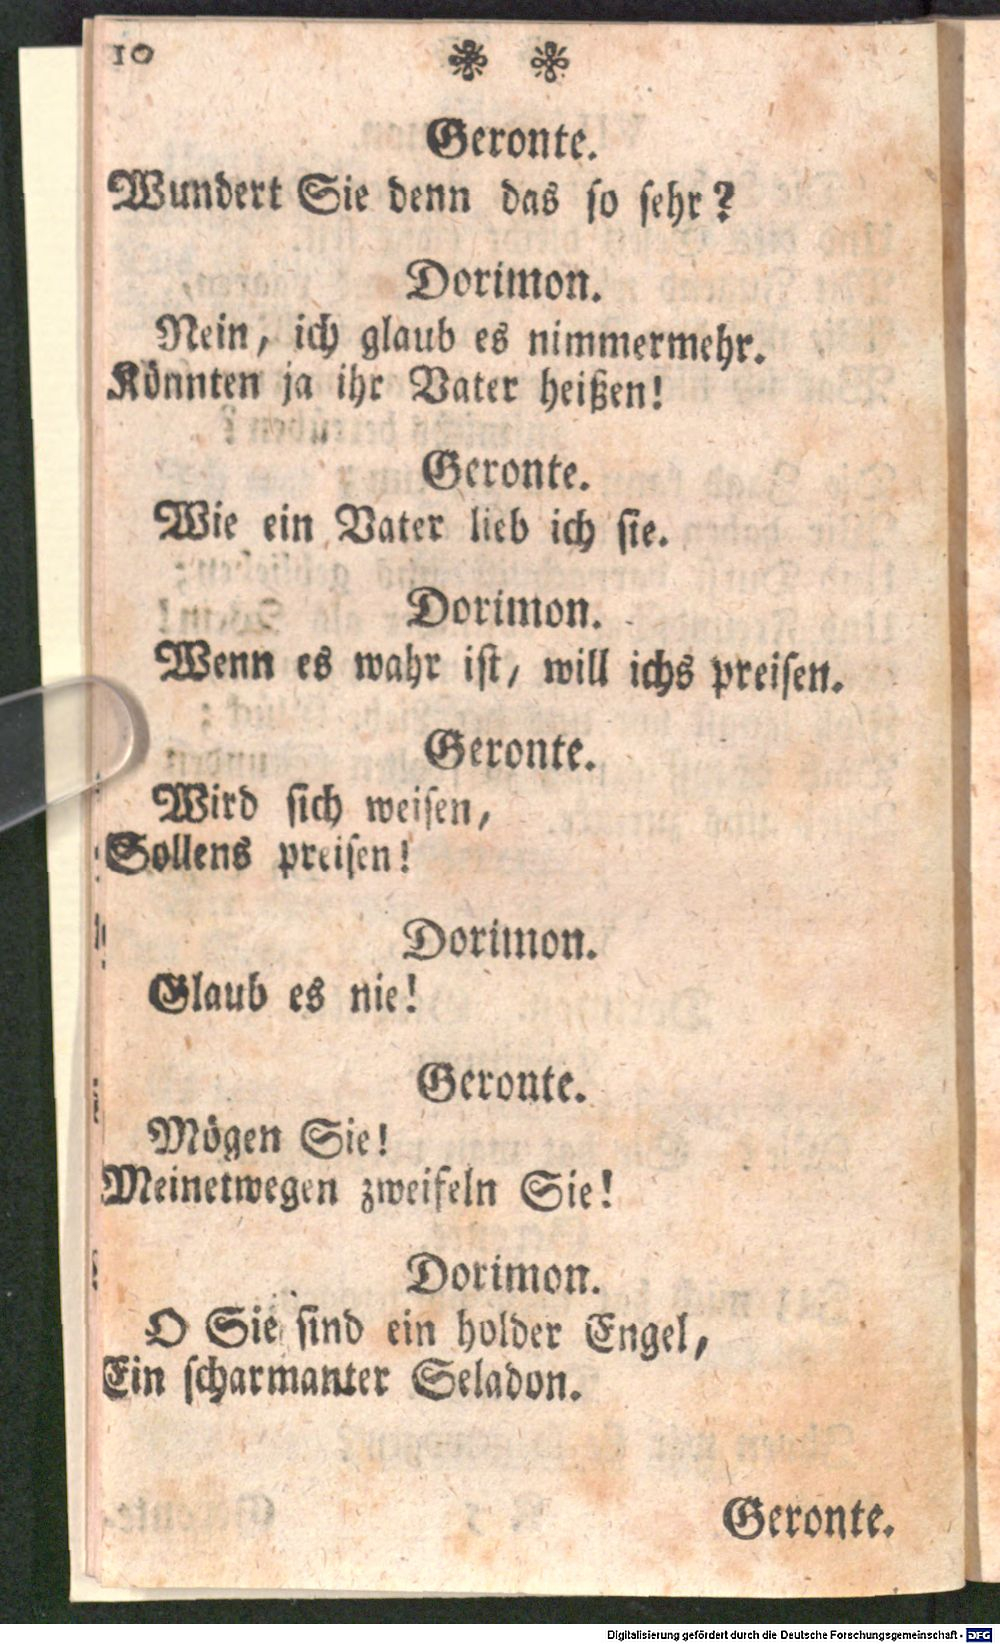 10
Geronte.
Wundert Sie denn das so sehr?
Dorimon.
Nein, ich glaub es nimmermehr.
Könnten ja ihr Vater heißen!
Geronte.
Wie ein Vater lieb ich sie.
Dorimon.
Wenn es wahr ist, will ichs preisen.
Geronte.
Wird sich weisen,
Sollens preisen!
Dorimon.
Glaub es nie!
Geronte.
Mögen Sie!
Meinetwegen zweifeln Sie!
Dorimon.
O Sie sind ein holder Engel,
Ein scharmanter Seladon.
Geronte.
Digitalisierung gefördert durch die Deutsche Forschungsgemeinschaft - DFG